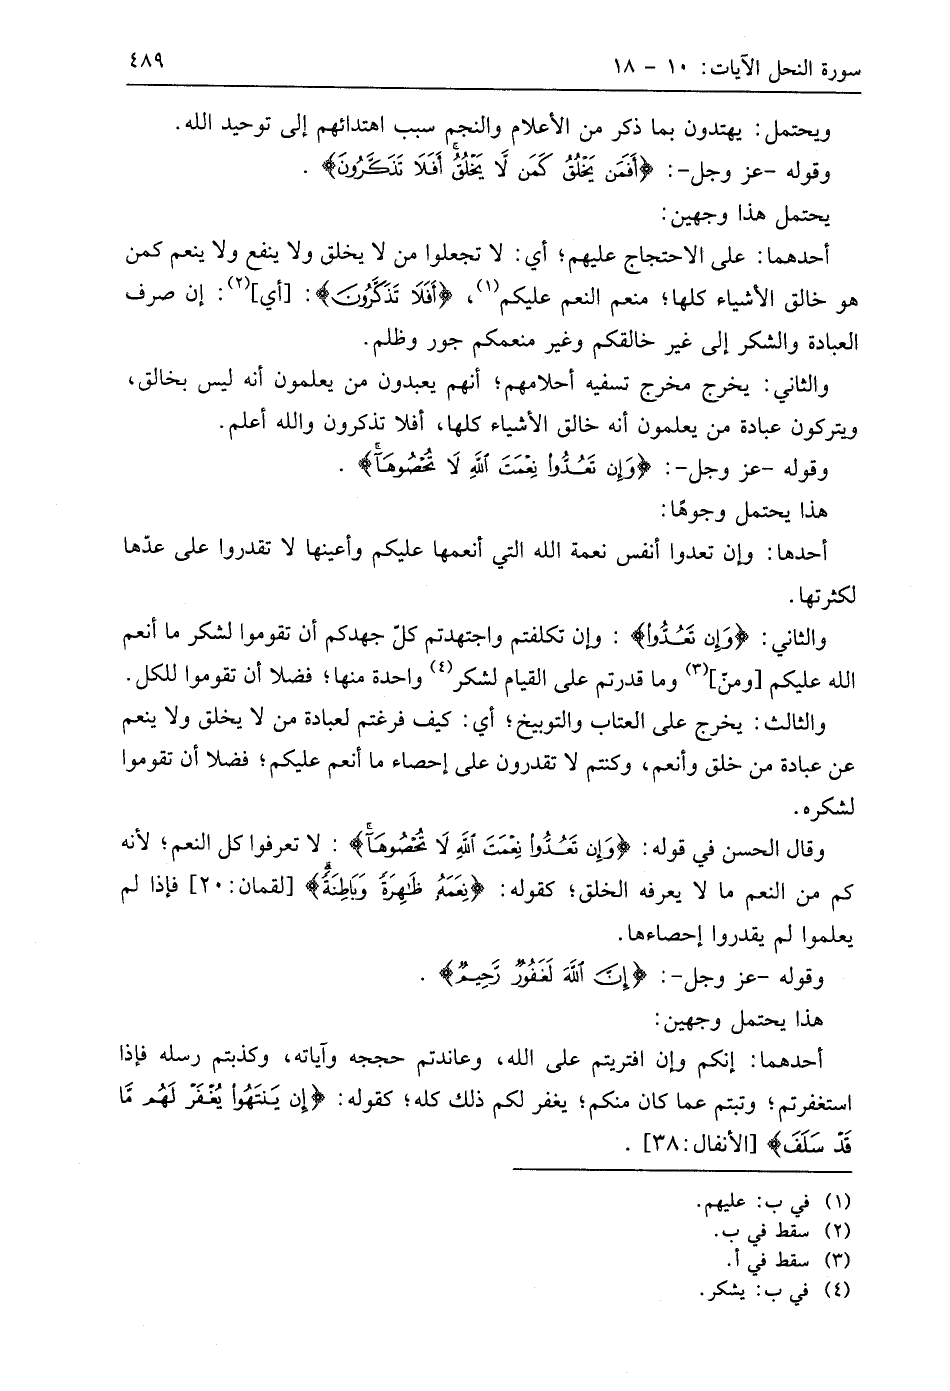 سورة النحل الآيات: ١٠ - ١٨
٤٨٩
ويحتمل: يهتدون بما ذكر من الأعلام والنجم سبب اهتدائهم إلى توحيد الله.
وقوله -عز وجل-: ﴿أَفَمَن يَخْلُقُ كَمَن لَّا يَخْلُقُ ۚ أَفَلَا تَذَكَّرُونَ﴾ .
يحتمل هذا وجهين:
أحدهما: على الاحتجاج عليهم؛ أي: لا تجعلوا من لا يخلق ولا ينفع ولا ينعم كمن
هو خالق الأشياء كلها؛ منعم النعم عليكم(١)، ﴿أَفَلَا تَذَكَّرُونَ﴾: [أي](٢): إن صرف
العبادة والشكر إلى غير خالقكم وغير منعمكم جور وظلم.
والثاني: يخرج مخرج تسفيه أحلامهم؛ أنهم يعبدون من يعلمون أنه ليس بخالق،
ويتركون عبادة من يعلمون أنه خالق الأشياء كلها، أفلا تذكرون والله أعلم.
وقوله -عز وجل-: ﴿وَإِن تَعُدُّوا۟ نِعْمَتَ ٱللَّهِ لَا تُحْصُوهَآ ۚ﴾ .
هذا يحتمل وجوهًا:
أحدها: وإن تعدوا أنفس نعمة الله التي أنعمها عليكم وأعينها لا تقدروا على عدّها
لكثرتها.
والثاني: ﴿وَإِن تَعُدُّوا۟﴾ : وإن تكلفتم واجتهدتم كلّ جهدكم أن تقوموا لشكر ما أنعم
الله عليكم [ومنّ](٣) وما قدرتم على القيام لشكر(٤) واحدة منها؛ فضلا أن تقوموا للكل.
والثالث: يخرج على العتاب والتوبيخ؛ أي: كيف فرغتم لعبادة من لا يخلق ولا ينعم
عن عبادة من خلق وأنعم، وكنتم لا تقدرون على إحصاء ما أنعم عليكم؛ فضلا أن تقوموا
لشكره.
وقال الحسن في قوله: ﴿وَإِن تَعُدُّوا۟ نِعْمَتَ ٱللَّهِ لَا تُحْصُوهَآ ۚ﴾ : لا تعرفوا كل النعم؛ لأنه
كم من النعم ما لا يعرفه الخلق؛ كقوله: ﴿نِعَمَهُۥ ظَٰهِرَةً وَبَاطِنَةً ۗ﴾ [لقمان:٢٠] فإذا لم
يعلموا لم يقدروا إحصاءها.
وقوله -عز وجل-: ﴿إِنَّ ٱللَّهَ لَغَفُورٌ رَّحِيمٌ﴾ .
هذا يحتمل وجهين:
أحدهما: إنكم وإن افتريتم على الله، وعاندتم حججه وآياته، وكذبتم رسله فإذا
استغفرتم؛ وتبتم عما كان منكم؛ يغفر لكم ذلك كله؛ كقوله: ﴿إِن يَنتَهُوا۟ يُغْفَرْ لَهُم مَّا
قَدْ سَلَفَ﴾ [الأنفال:٣٨] .
(١) في ب: عليهم.
(٢) سقط في ب.
(٣) سقط في أ.
(٤) في ب: يشكر.